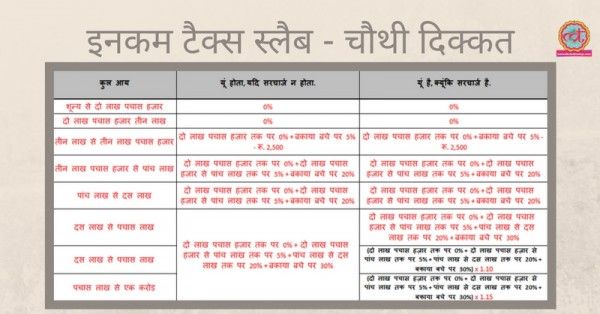 इनकम टैक्स स्लैब - चौथी दिक्कत
कुल आय
यूं होता, यदि सरचार्ज न होता.
यूं है, क्यूंकि सरचार्ज है.
शून्य से दो लाख पचास हजार
0%
0%
दो लाख पचास हजार तीन लाख
0%
0%
तीन लाख से तीन लाख पचास हजार
दो लाख पचास हजार तक पर 0% + बकाया बचे पर 5%
- रू. 2,500
दो लाख पचास हजार तक पर 0% + बकाया बचे पर 5% -
रू. 2,500
तीन लाख पचास हजार से पांच लाख
दो लाख पचास हजार तक पर 0% + दो लाख पचास
हजार से पांच लाख तक पर 5% + बकाया बचे पर 20%
दो लाख पचास हजार तक पर 0% + दो लाख पचास
हजार से पांच लाख तक पर 5% + बकाया बचे पर 20%
पांच लाख से दस लाख
दो लाख पचास हजार तक पर 0% + दो लाख पचास
हजार से पांच लाख तक पर 5% + बकाया बचे पर 20%
दो लाख पचास हजार तक पर 0% + दो लाख पचास
हजार से पांच लाख तक पर 5% + बकाया बचे पर 20%
दस लाख से पचास लाख
दो लाख पचास हजार तक पर 0% + दो लाख पचास
हजार से पांच लाख तक पर 5% + पांच लाख से दस
लाख तक पर 20% + बकाया बचे पर 30%
दो लाख पचास हजार तक पर 0% + दो लाख पचास
हजार से पांच लाख तक पर 5% + पांच लाख से दस
लाख तक पर 20% + बकाया बचे पर 30%
दस लाख से पचास लाख
(दो लाख पचास हजार तक पर 0% + दो लाख पचास हजार से
पांच लाख तक पर 5% + पांच लाख से दस लाख तक पर 20% +
बकाया बचे पर 30%) x 1.10
पचास लाख से एक करोड़
(दो लाख पचास हजार तक पर 0% + दो लाख पचास हजार से
पांच लाख तक पर 5% + पांच लाख से दस लाख तक पर 20% +
बकाया बचे पर 30%) x 1.15